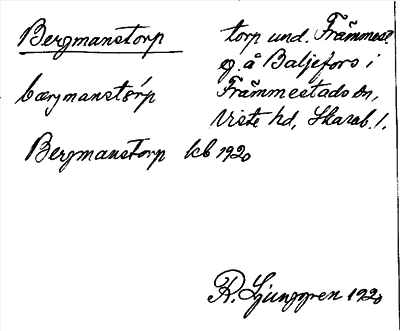 Bergmanstorp torp und. Främmest.
eg. å Baljefors i
bærgmanstȯrp Främmestads sn,
Viste hd, Skarab. l.
Bergmanstorp kb 1920
R. Ljunggren 1920